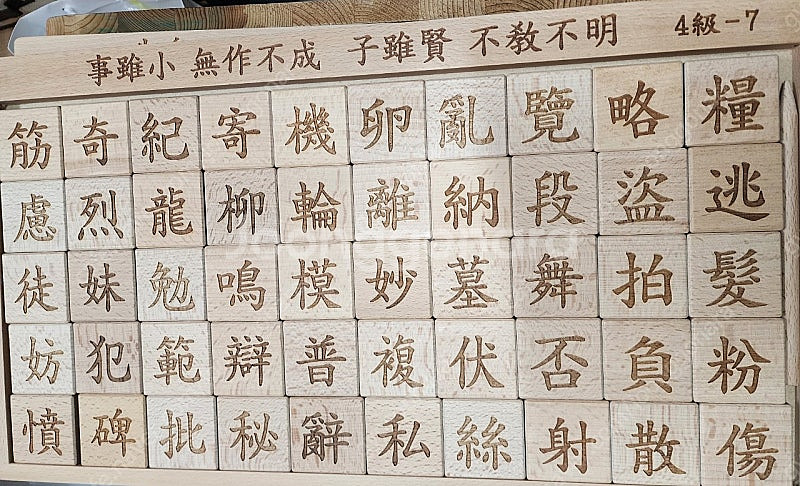 事雖小 無作不成 子雖賢 不敎不明 4級-7
筋 奇 紀 寄 機 卵 亂 覽 略 糧
慮 烈 龍 柳 輪 離 納 段 盜 逃
徒 妹 勉 鳴 模 妙 墓 舞 拍 髮
妨 犯 範 辯 普 複 伏 否 負 粉
憤 碑 批 秘 辭 私 絲 射 散 傷